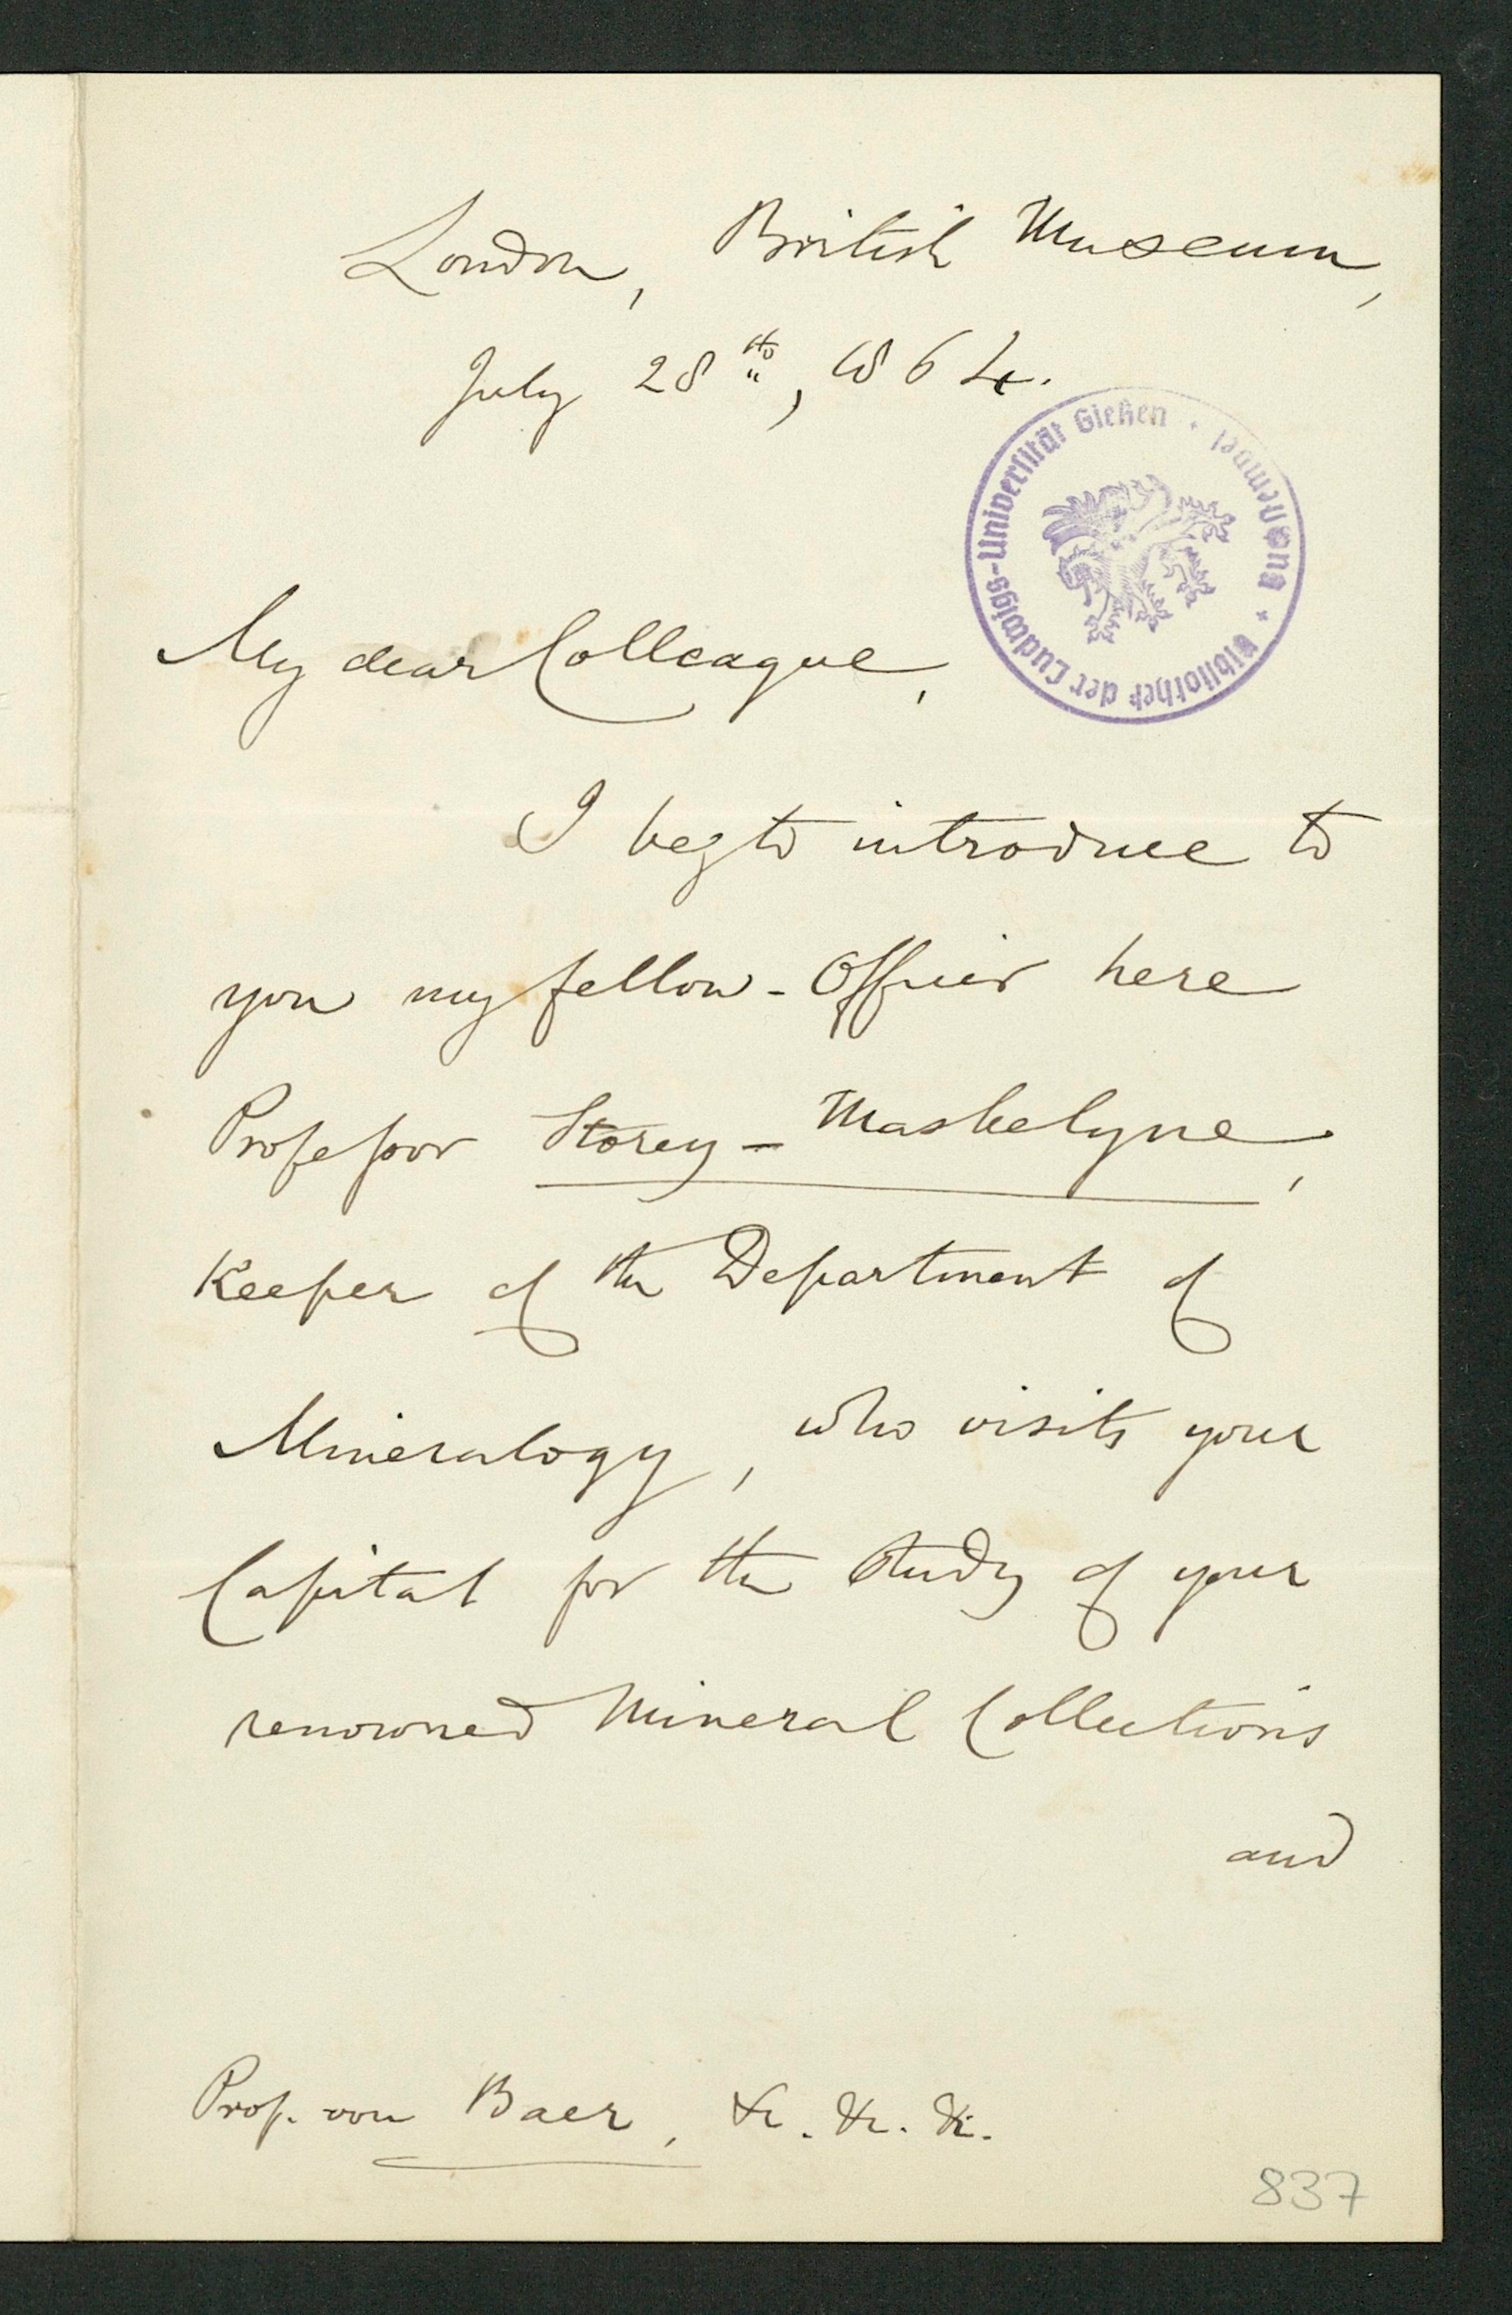 London, British Museum,
July 28th, 1864.
Bibliothek der Ludwigs-Universität Gießen
My dear Colleague,
I beg to introduce to
you my fellow-Officer here
Professor Storey-Maskelyne,
Keeper of the Department of
Mineralogy, who visits your
Capital for the Study of your
renowned Mineral Collections
and
Prof. von Baer, &c. &c. &c.
837